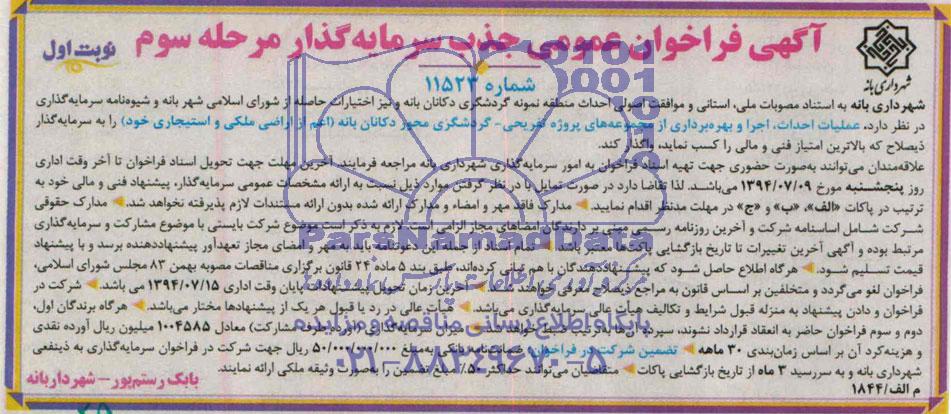 آگهی فراخوان عمومی جذب سرمایه‌گذار مرحله سوم
نوبت اول
شهرداری بانه
شماره ۱۱۵۲۳
شهرداری بانه به استناد مصوبات ملی، استانی و موافقت اصولی احداث منطقه نمونه گردشگری دکانان بانه و نیز اختیارات حاصله از شورای اسلامی شهر بانه و شیوه‌نامه سرمایه‌گذاری
در نظر دارد، عملیات احداث، اجرا و بهره‌برداری از مجموعه‌های پروژه تفریحی- گردشگری محور دکانان بانه (اعم از اراضی ملکی و استیجاری خود) را به سرمایه‌گذار
ذیصلاح که بالاترین امتیاز فنی و مالی را کسب نماید، واگذار کند.
علاقمندان می‌توانند به‌صورت حضوری جهت تهیه اسناد فراخوان به امور سرمایه‌گذاری شهرداری بانه مراجعه فرمایند. آخرین مهلت جهت تحویل اسناد فراخوان تا آخر وقت اداری
روز پنجشنبه مورخ ۱۳۹۴/۰۷/۰۹ می‌باشد. لذا تقاضا دارد در صورت تمایل با در نظر گرفتن موارد ذیل نسبت به ارائه مشخصات عمومی سرمایه‌گذار، پیشنهاد فنی و مالی خود به
ترتیب در پاکات «الف»، «ب» و «ج» در مهلت مدنظر اقدام نمایید. مدارک فاقد مهر و امضاء و مدارک ارائه شده بدون ارائه مستندات لازم پذیرفته نخواهد شد. مدارک حقوقی
شرکت شامل اساسنامه شرکت و آخرین روزنامه رسمی مبنی بر دارندگان امضاهای مجاز الزامی است. لازم به ذکر است موضوع شرکت بایستی با موضوع مشارکت و سرمایه‌گذاری
مرتبط بوده و آگهی آخرین تغییرات تا تاریخ بازگشایی پاکت‌ها معتبر باشد. تمام اسناد از جمله این دعوتنامه باید به مهر و امضای مجاز تعهدآور پیشنهاددهنده برسد و با پیشنهاد
قیمت تسلیم شود. هرگاه اطلاع حاصل شود که پیشنهاددهندگان با هم تبانی کرده‌اند، طبق بند ۵ ماده ۲۴ قانون برگزاری مناقصات مصوبه بهمن ۸۳ مجلس شورای اسلامی،
فراخوان لغو می‌گردد و متخلفین بر اساس قانون به مراجع ذیصلاح معرفی خواهند شد. آخرین زمان تحویل پیشنهادات پایان وقت اداری ۱۳۹۴/۰۷/۱۵ می باشد. شرکت در
فراخوان و دادن پیشنهاد به منزله قبول شرایط و تکالیف هیأت عالی سرمایه‌گذاری می‌باشد. هیأت عالی در رد یا قبول هر یک از پیشنهادها مختار می‌باشد. هرگاه برندگان اول،
دوم و سوم فراخوان حاضر به انعقاد قرارداد نشوند، سپرده مشارکت) معادل ۱۰۰۴۵۸۵ میلیون ریال آورده نقدی
و هزینه‌کرد آن بر اساس زمان‌بندی ۳۰ ماهه تضمین شرکت در فراخوان: ضمانت‌نامه بانکی به‌مبلغ ۵۰/۰۰۰/۰۰۰/۰۰۰ ریال جهت شرکت در فراخوان سرمایه‌گذاری به ذینفعی
شهرداری بانه و به سررسید ۳ ماه از تاریخ بازگشایی پاکات متقاضیان می‌توانند حداکثر ۵۰٪ مبلغ تضمین را به‌صورت وثیقه ملکی ارائه نمایند.
م الف/۱۸۴۴
بابک رستم‌پور - شهردار بانه
ParsNamadData
پایگاه اطلاع رسانی مناقصه و مزایده
۰۲۱-۸۸۳۴۹۶۷۰-۵